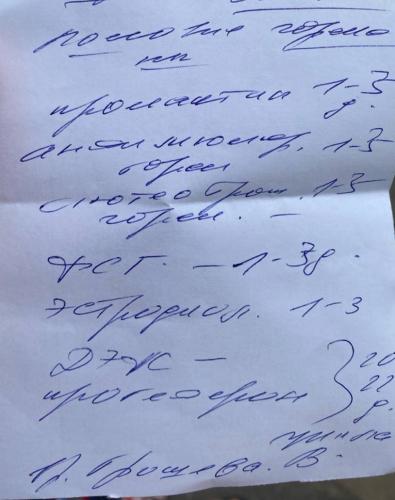 половые гормо
ны
пролактин 1-3
д.
антимюллер. 1-3
гормон
лютео троп. 1-3
гормон. —
ФСГ. — 1-3д.
эстрадиол. 1-3
ДЭЖ —
прогестерон
20
22
д.
цикла